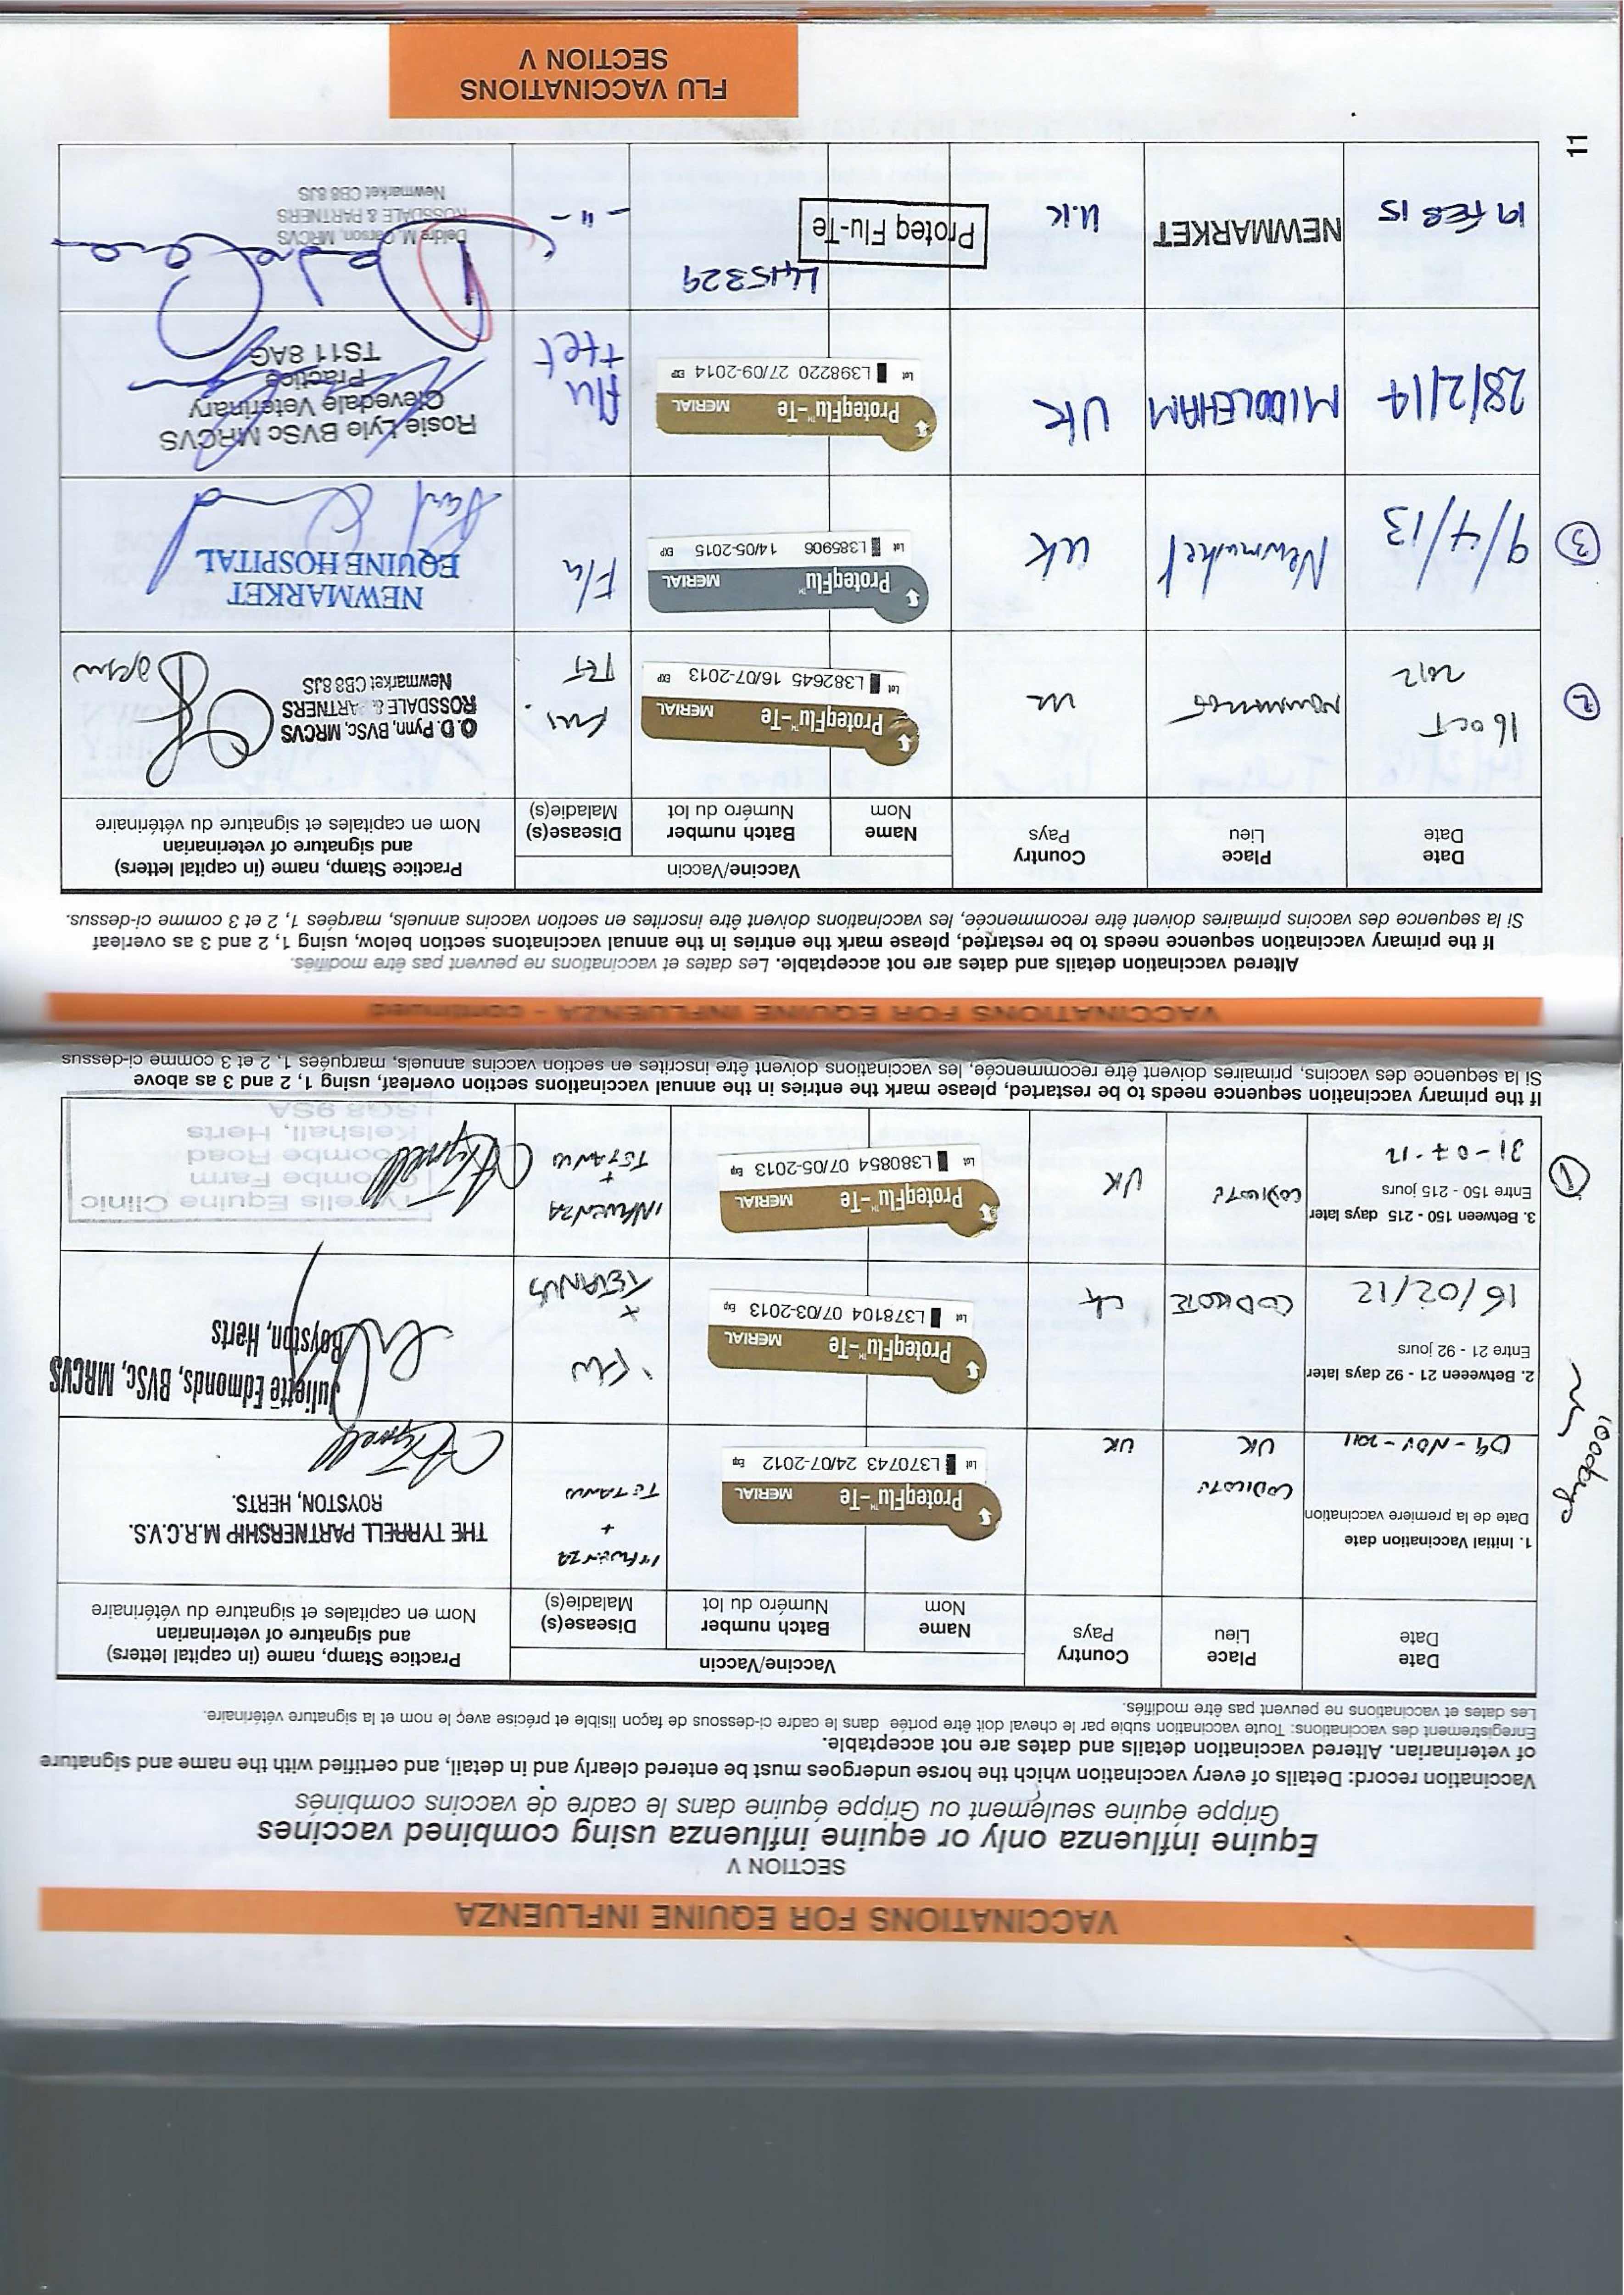 VACCINATIONS FOR EQUINE INFLUENZA
SECTION V
Equine influenza only or equine influenza using combined vaccines
Grippe équine seulement ou Grippe équine dans le cadre de vaccins combinés
Vaccination record: Details of every vaccination which the horse undergoes must be entered clearly and in detail, and certified with the name and signature
of veterinarian. Altered vaccination details and dates are not acceptable.
Enregistrement des vaccinations: Toute vaccination subie par le cheval doit être portée dans le cadre ci-dessous de façon lisible et précise avec le nom et la signature vétérinaire.
Les dates et vaccinations ne peuvent pas être modifiés.
Date
Date
Place
Lieu
Country
Pays
Vaccine/Vaccin
Name
Nom
Batch number
Numéro du lot
Disease(s)
Maladie(s)
Practice Stamp, name (in capital letters)
and signature of veterinarian
Nom en capitales et signature du vétérinaire
1. Initial Vaccination date
Date de la première vaccination
09-NOV-2011
CODICOTE
UK
UK
ProteqFlu™-Te MERIAL
Lot L370743 24/07-2012 Exp
INFLUENZA
+
TETANUS
THE TYRRELL PARTNERSHIP M.R.C.V.S.
ROYSTON, HERTS.
100 days
2. Betweeen 21 - 92 days later
Entre 21 - 92 jours
16/02/12
CODICOTE
UK
ProteqFlu™-Te MERIAL
Lot L378104 07/03-2013 Exp
FLU
+
TETANUS
Juliette Edmonds, BVSc, MRCVS
Royston, Herts
①
3. Between 150 - 215 days later
Entre 150 - 215 jours
31-07-12
CODICOTE
UK
ProteqFlu™-Te MERIAL
Lot L380854 07/05-2013 Exp
INFLUENZA
+
TETANUS
Tyrrells Equine Clinic
Coombe Farm
Coombe Road
Kelshall, Herts
SG8 9SA
If the primary vaccination sequence needs to be restarted, please mark the entries in the annual vaccinations section overleaf, using 1, 2 and 3 as above
Si la sequence des vaccins, primaires doivent être recommencée, les vaccinations doivent être inscrites en section vaccins annuels, marquées 1, 2 et 3 comme ci-dessus
VACCINATIONS FOR EQUINE INFLUENZA - continued
Altered vaccination details and dates are not acceptable. Les dates et vaccinations ne peuvent pas être modifiés.
If the primary vaccination sequence needs to be restarted, please mark the entries in the annual vaccinatons section below, using 1, 2 and 3 as overleaf
Si la sequence des vaccins primaires doivent être recommencée, les vaccinations doivent être inscrites en section vaccins annuels, marqées 1, 2 et 3 comme ci-dessus.
Date
Date
Place
Lieu
Country
Pays
Vaccine/Vaccin
Name
Nom
Batch number
Numéro du lot
Disease(s)
Maladie(s)
Practice Stamp, name (in capital letters)
and signature of veterinarian
Nom en capitales et signature du vétérinaire
②
16 OCT
2012
Newmarket
UK
ProteqFlu™-Te MERIAL
Lot L382645 16/07-2013 EXP
Flu.
TET
O.D. Pynn, BVSc, MRCVS
ROSSDALE & PARTNERS
Newmarket CB8 8JS
③
9/4/13
Newmarket
UK
ProteqFlu™ MERIAL
Lot L385906 14/05-2015 EXP
Flu
NEWMARKET
EQUINE HOSPITAL
28/2/14
MIDDLEHAM
UK
ProteqFlu™-Te MERIAL
Lot L398220 27/09-2014 EXP
flu
+tet
Rosie Lyle BVSc MRCVS
Clevedale Veterinary
Practice
TS11 8AG
19 FEB 15
NEWMARKET
U.K
Proteq Flu-Te
L415329
- " -
Deidre M. Carson, MRCVS
ROSSDALE & PARTNERS
Newmarket CB8 8JS
11
FLU VACCINATIONS
SECTION V